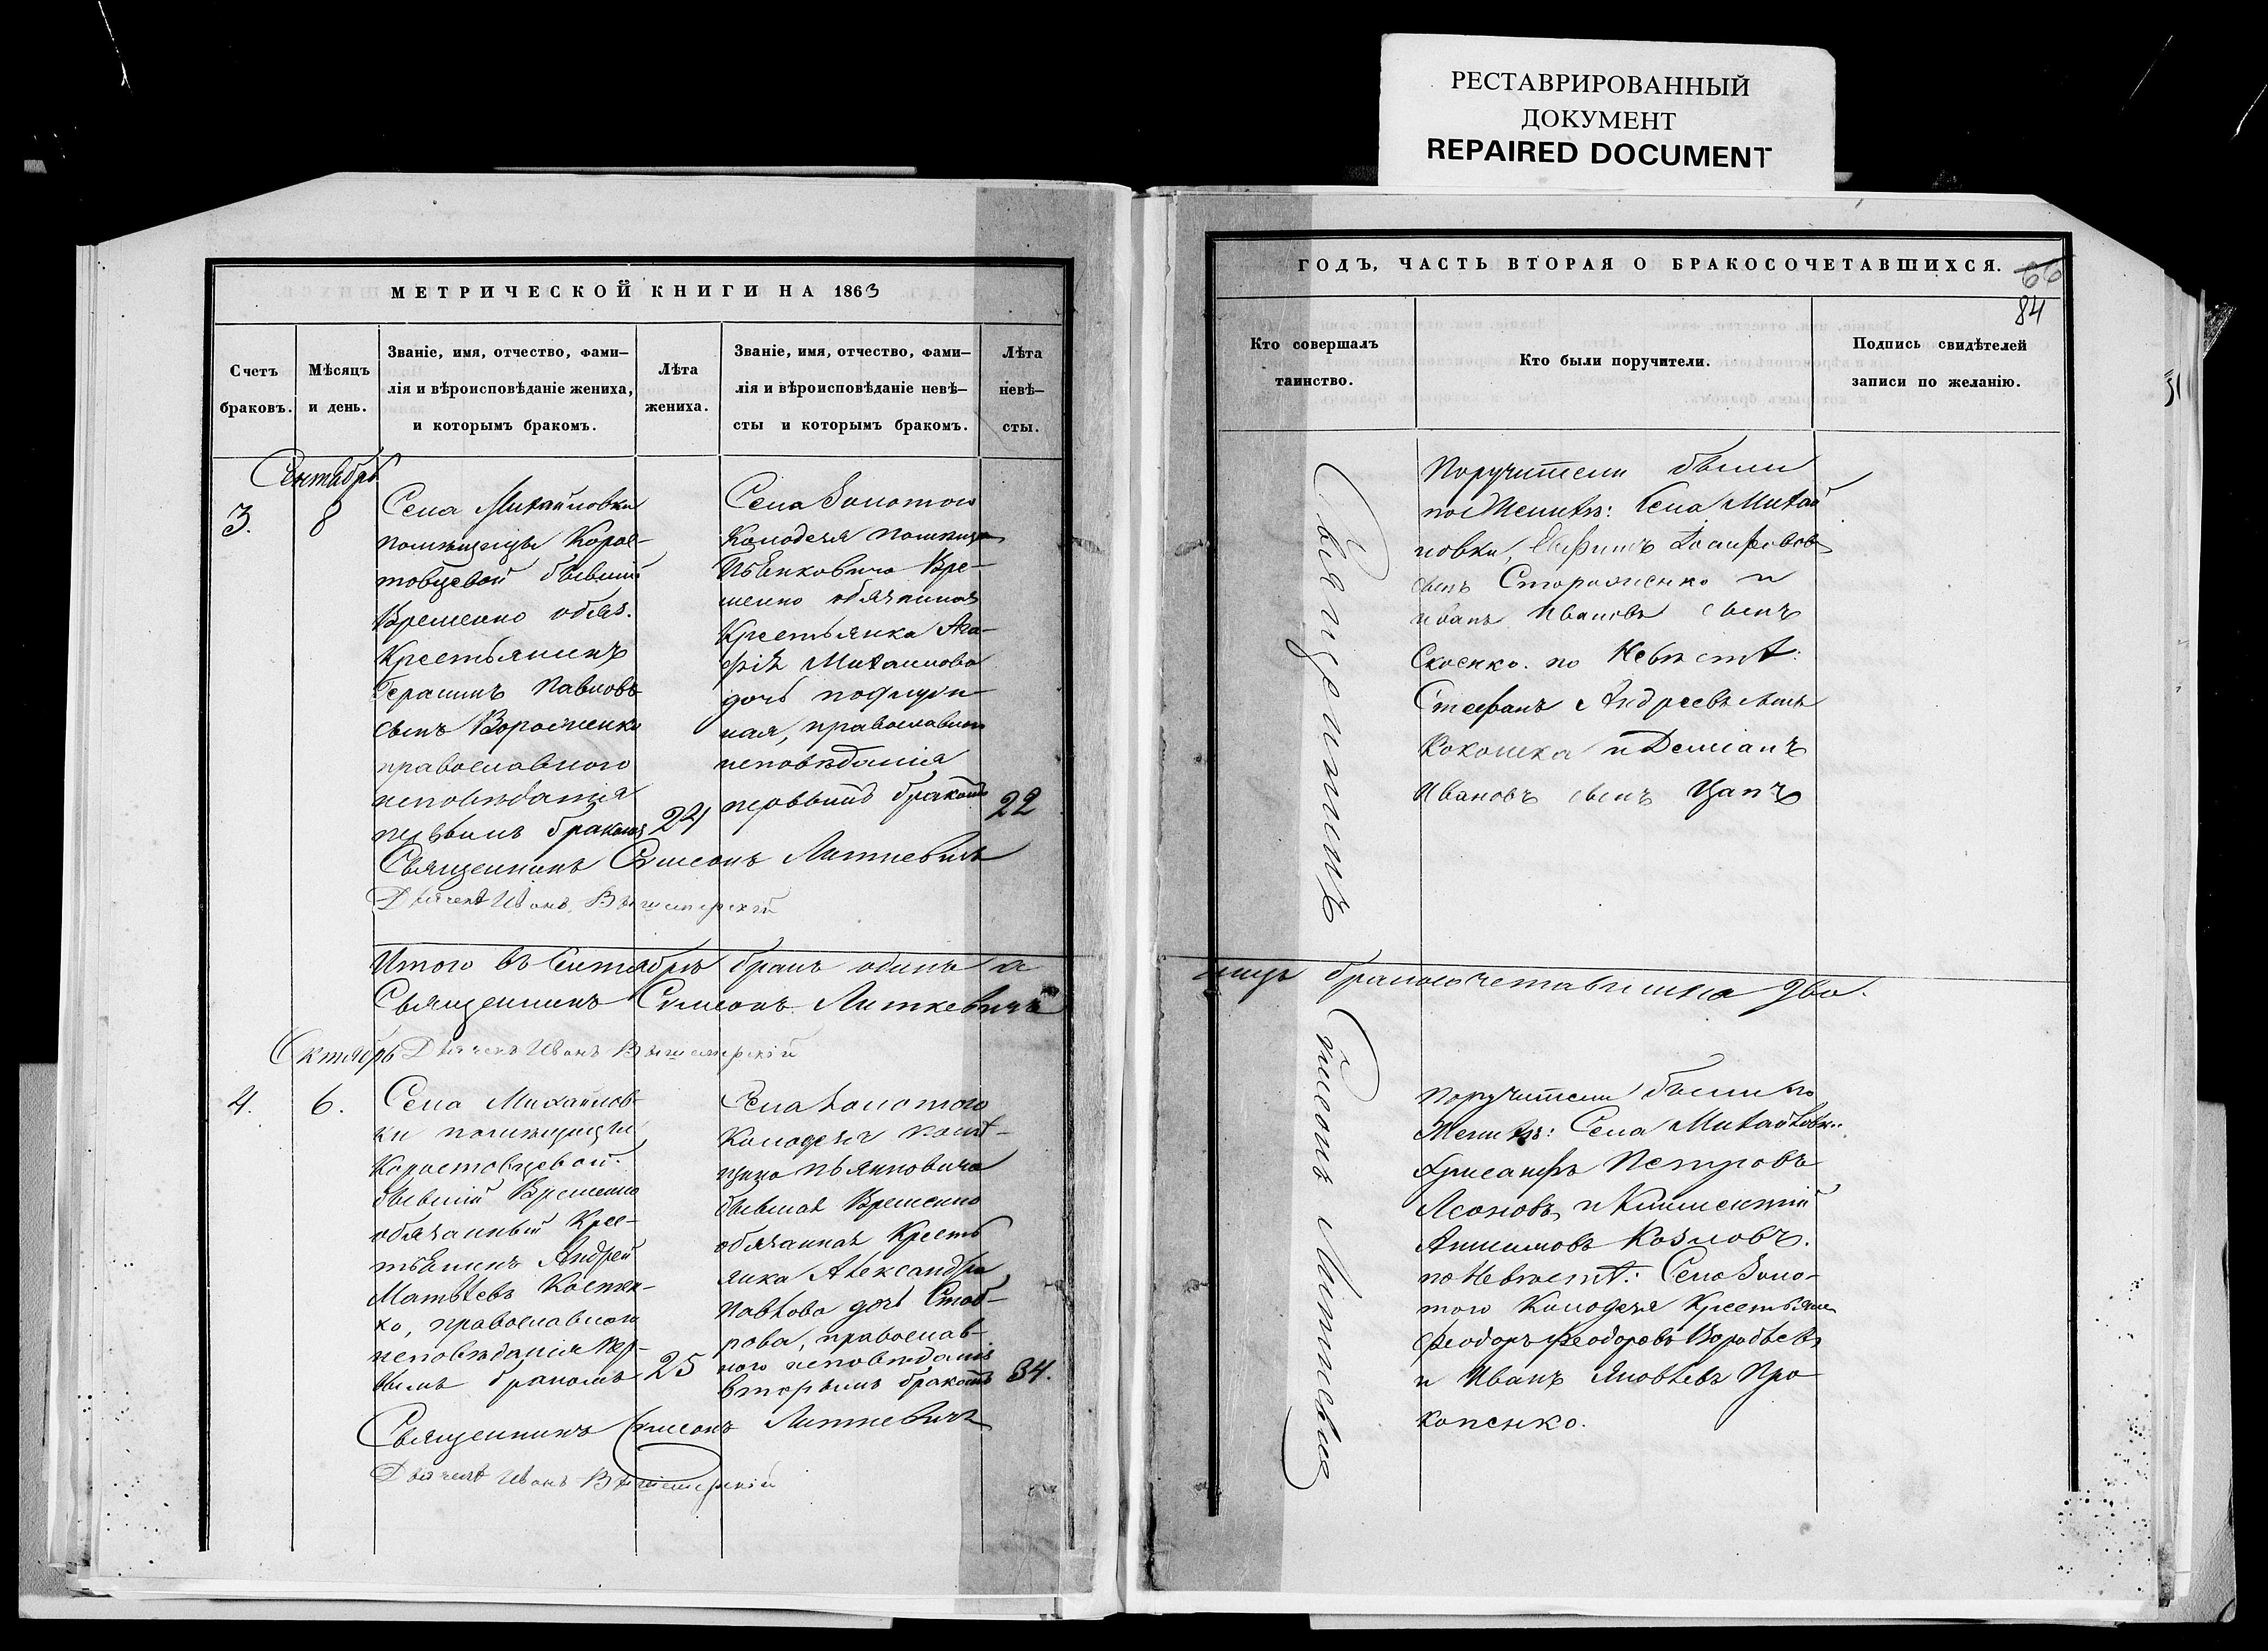 РЕСТАВРИРОВАННЫЙ
ДОКУМЕНТ
REPAIRED DOCUMENT
МЕТРИЧЕСКОЙ КНИГИ НА 1863
Счетъ
браковъ.
Мѣсяцъ
и день.
Званіе, имя, отчество, фами–
лія и вѣроисповѣданіе жениха,
и которымъ бракомъ.
Лѣта
жениха.
Званіе, имя, отчество, фами–
лія и вѣроисповѣданіе невѣ–
сты и которымъ бракомъ.
Лѣта
невѣ–
сты.
Сентябрь
3.
8
Села Михайловки
помѣщицы Корос–
товцевой бывшій
Временно обяз.
Крестьянинъ
Герасимъ Павловъ
сынъ
православного
исповѣданія
первымъ бракомъ
24
Села Золотого
Колодезя помѣщика
Вре–
менно обязанная
Крестьянка Ага–
фія Михаилова
дочь
ная, православнаго
исповѣданія
первымъ бракомъ
22
Священникъ Симеонъ Литкевичъ
Дьячекъ Иванъ
Итого въ Сентябрѣ бракъ одинъ а
Священникъ Симеонъ Литкевичъ
Октябрь
Дьячекъ Иванъ
4.
6.
Села Михайлов–
ки помѣщицы
Коростовцевой
бывшій Временно
обязанный Крес–
тьянинъ Андрей
Матвѣевъ
ко, православного
исповѣданія пер–
вымъ бракомъ
25
Села Золотого
Колодезя помѣ–
щика
бывшая Временно
обязанная Кресть
янка Александра
Павлова дочь
рова, православ–
ного исповѣданія
вторымъ бракомъ
34.
Священникъ Симеонъ Литкевичъ
Дьячекъ Иванъ
ГОДЪ, ЧАСТЬ ВТОРАЯ О БРАКОСОЧЕТАВШИХСЯ.
66
84
Кто совершалъ
таинство.
Кто были поручители.
Подпись свидѣтелей
записи по желанію.
Священникъ Симеонъ Литкевичъ
Поручители были
по Женихѣ: Села Михай
ловки,
сынъ Стороженко и
Иванъ Ивановъ сынъ
по Невѣстѣ:
Стефанъ Андреевъ сынъ
Кокошка и Деміанъ
Ивановъ сынъ Цапъ
лицъ бракосочетавшихся два.
Поручители были по
Женихѣ: Села Михайловки
Хрисанфъ Петровъ
Леоновъ и Климентій
Анисимовъ Козловъ.
по Невѣстѣ: Села Золо–
того Колодезя Крестьяне
Феодоръ Феодоровъ Воробьевъ
и Иванъ Яковлевъ Про
копенко.